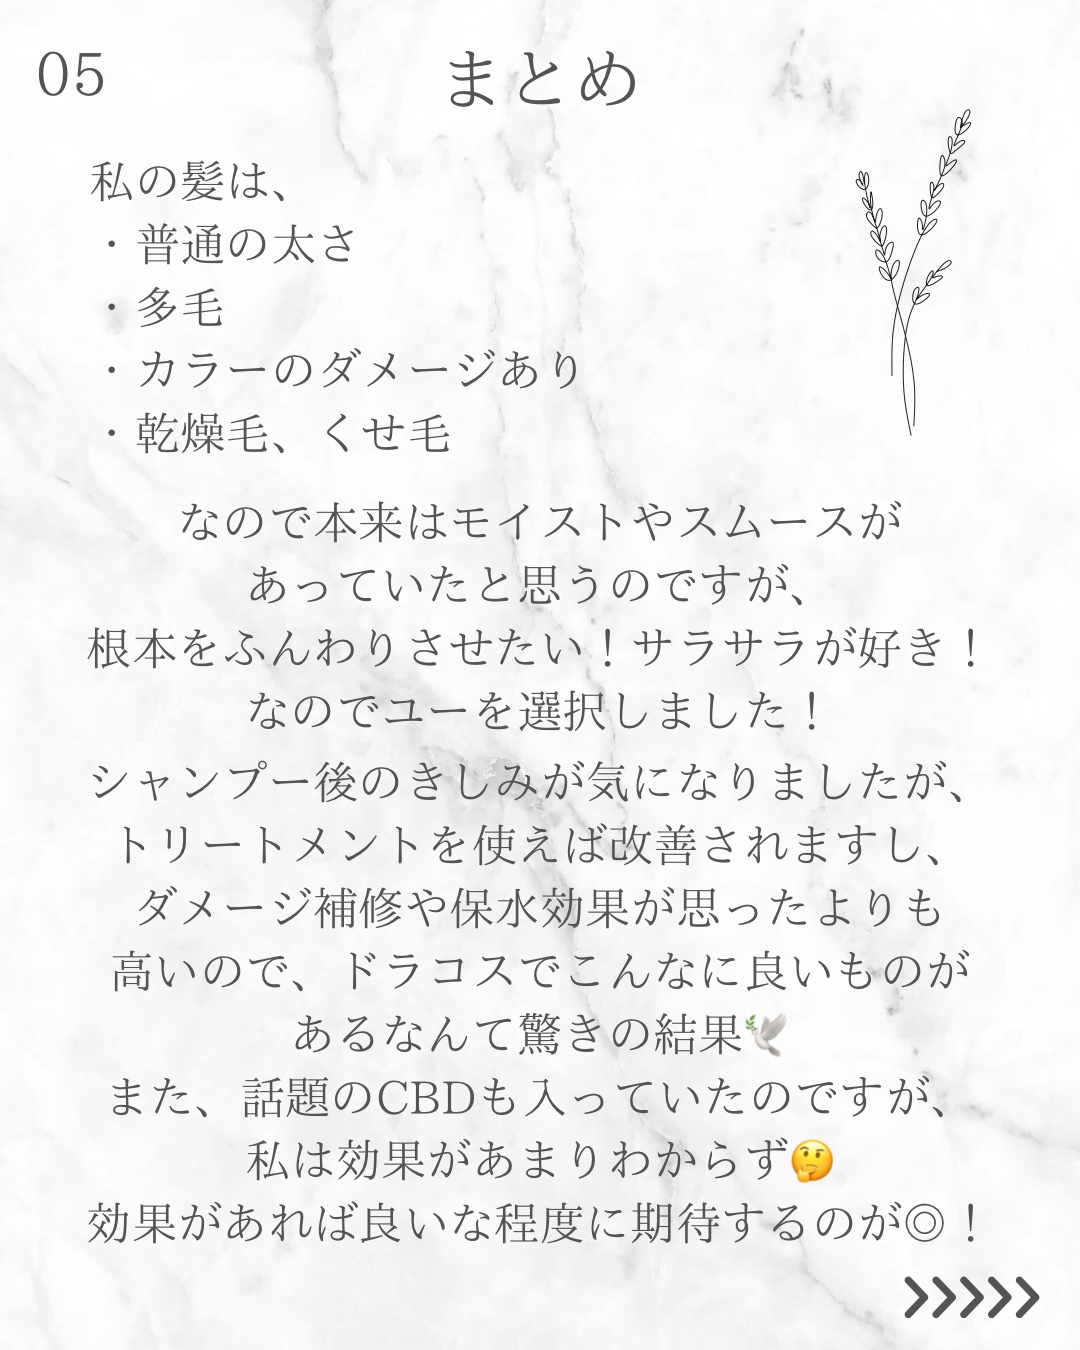 05
まとめ
私の髪は、
・普通の太さ
・多毛
・カラーのダメージあり
・乾燥毛、くせ毛
なので本来はモイストやスムースが
あっていたと思うのですが、
根本をふんわりさせたい！サラサラが好き！
なのでユーを選択しました！
シャンプー後のきしみが気になりましたが、
トリートメントを使えば改善されますし、
ダメージ補修や保水効果が思ったよりも
高いので、ドラコスでこんなに良いものが
あるなんて驚きの結果🕊️
また、話題のCBDも入っていたのですが、
私は効果があまりわからず🤔
効果があれば良いな程度に期待するのが◎！